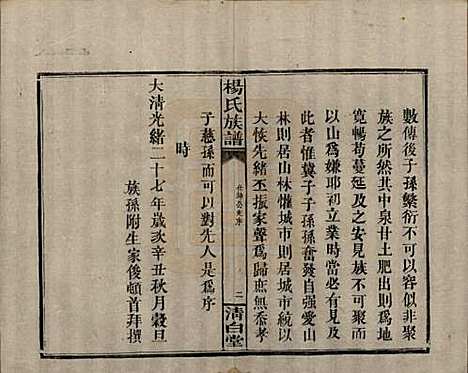 數傳後子孫繁衍不可以容假非聚
族之所然其中泉甘土肥出則爲地
寬暢苟蔓延及之安見族不可聚而
以山爲嫌耶初立業時當
此者惟冀子子孫孫奮發自强愛山
林則居山林懽城市則居城市統以
大恢先緒丕振家聲爲歸庶無忝孝
楊氏族譜
公先序
二
清白堂
子慈孫而可以對先人是爲序
時
大清光緒二十七年歲次辛丑秋月穀旦
族孫附生家後頓首拜撰